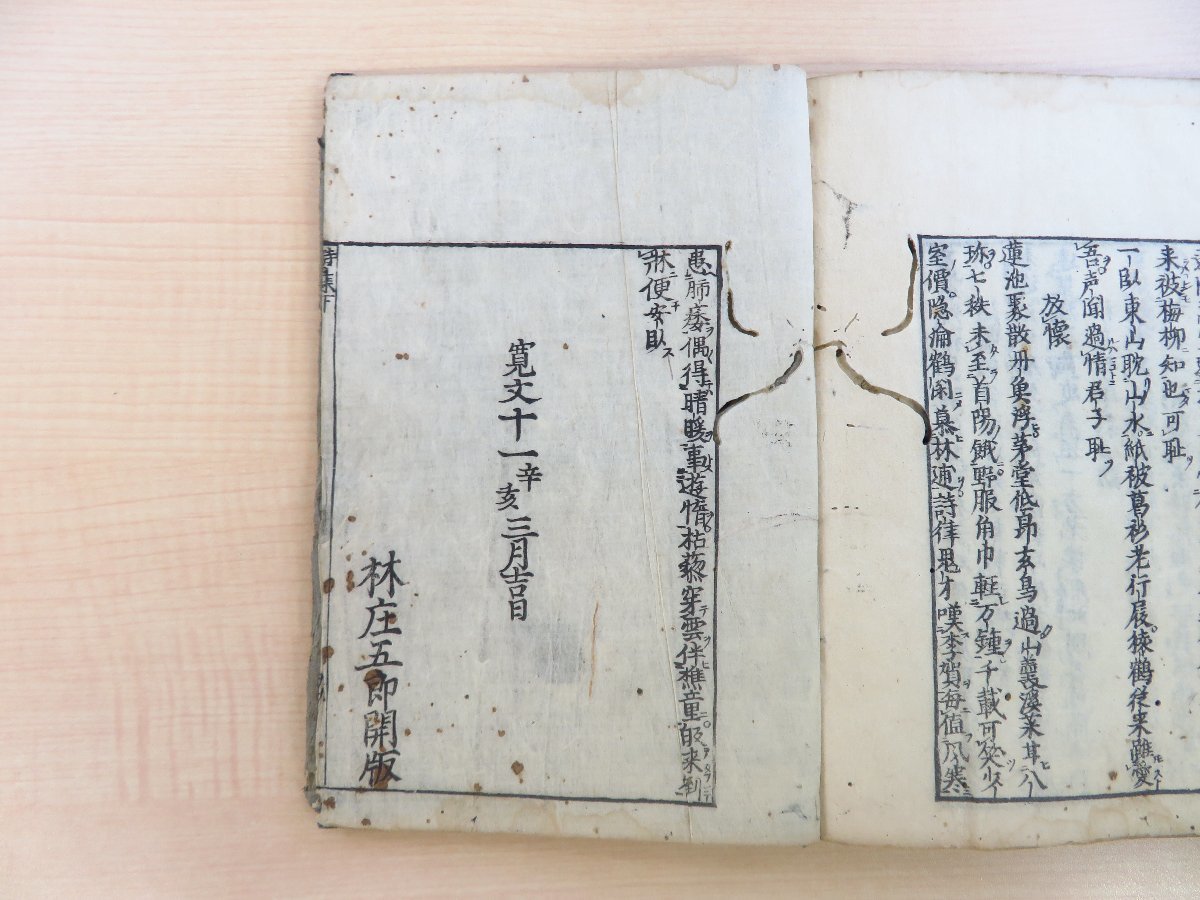 来被梅柳知也可恥
一臥東山耽山水紙被葛衫老行展猿鶴従来雖愛
吾声聞過情君子恥
放懐
蓮池聚散丹魚浮茅堂低昻玄鳥過山蕞溪茶甘八
珎七秩未至首陽餓野服角巾軽万鍾千載可笑少
室價隐淪鶴閑慕林逋詩律鬼才嘆李賀毎値風寒
患肺痿偶得晴暖事遊惰枯藜穿雲伴樵童皈来到
牀便安臥
寛文十一辛亥三月吉日
林庄五郎開版
詩集下